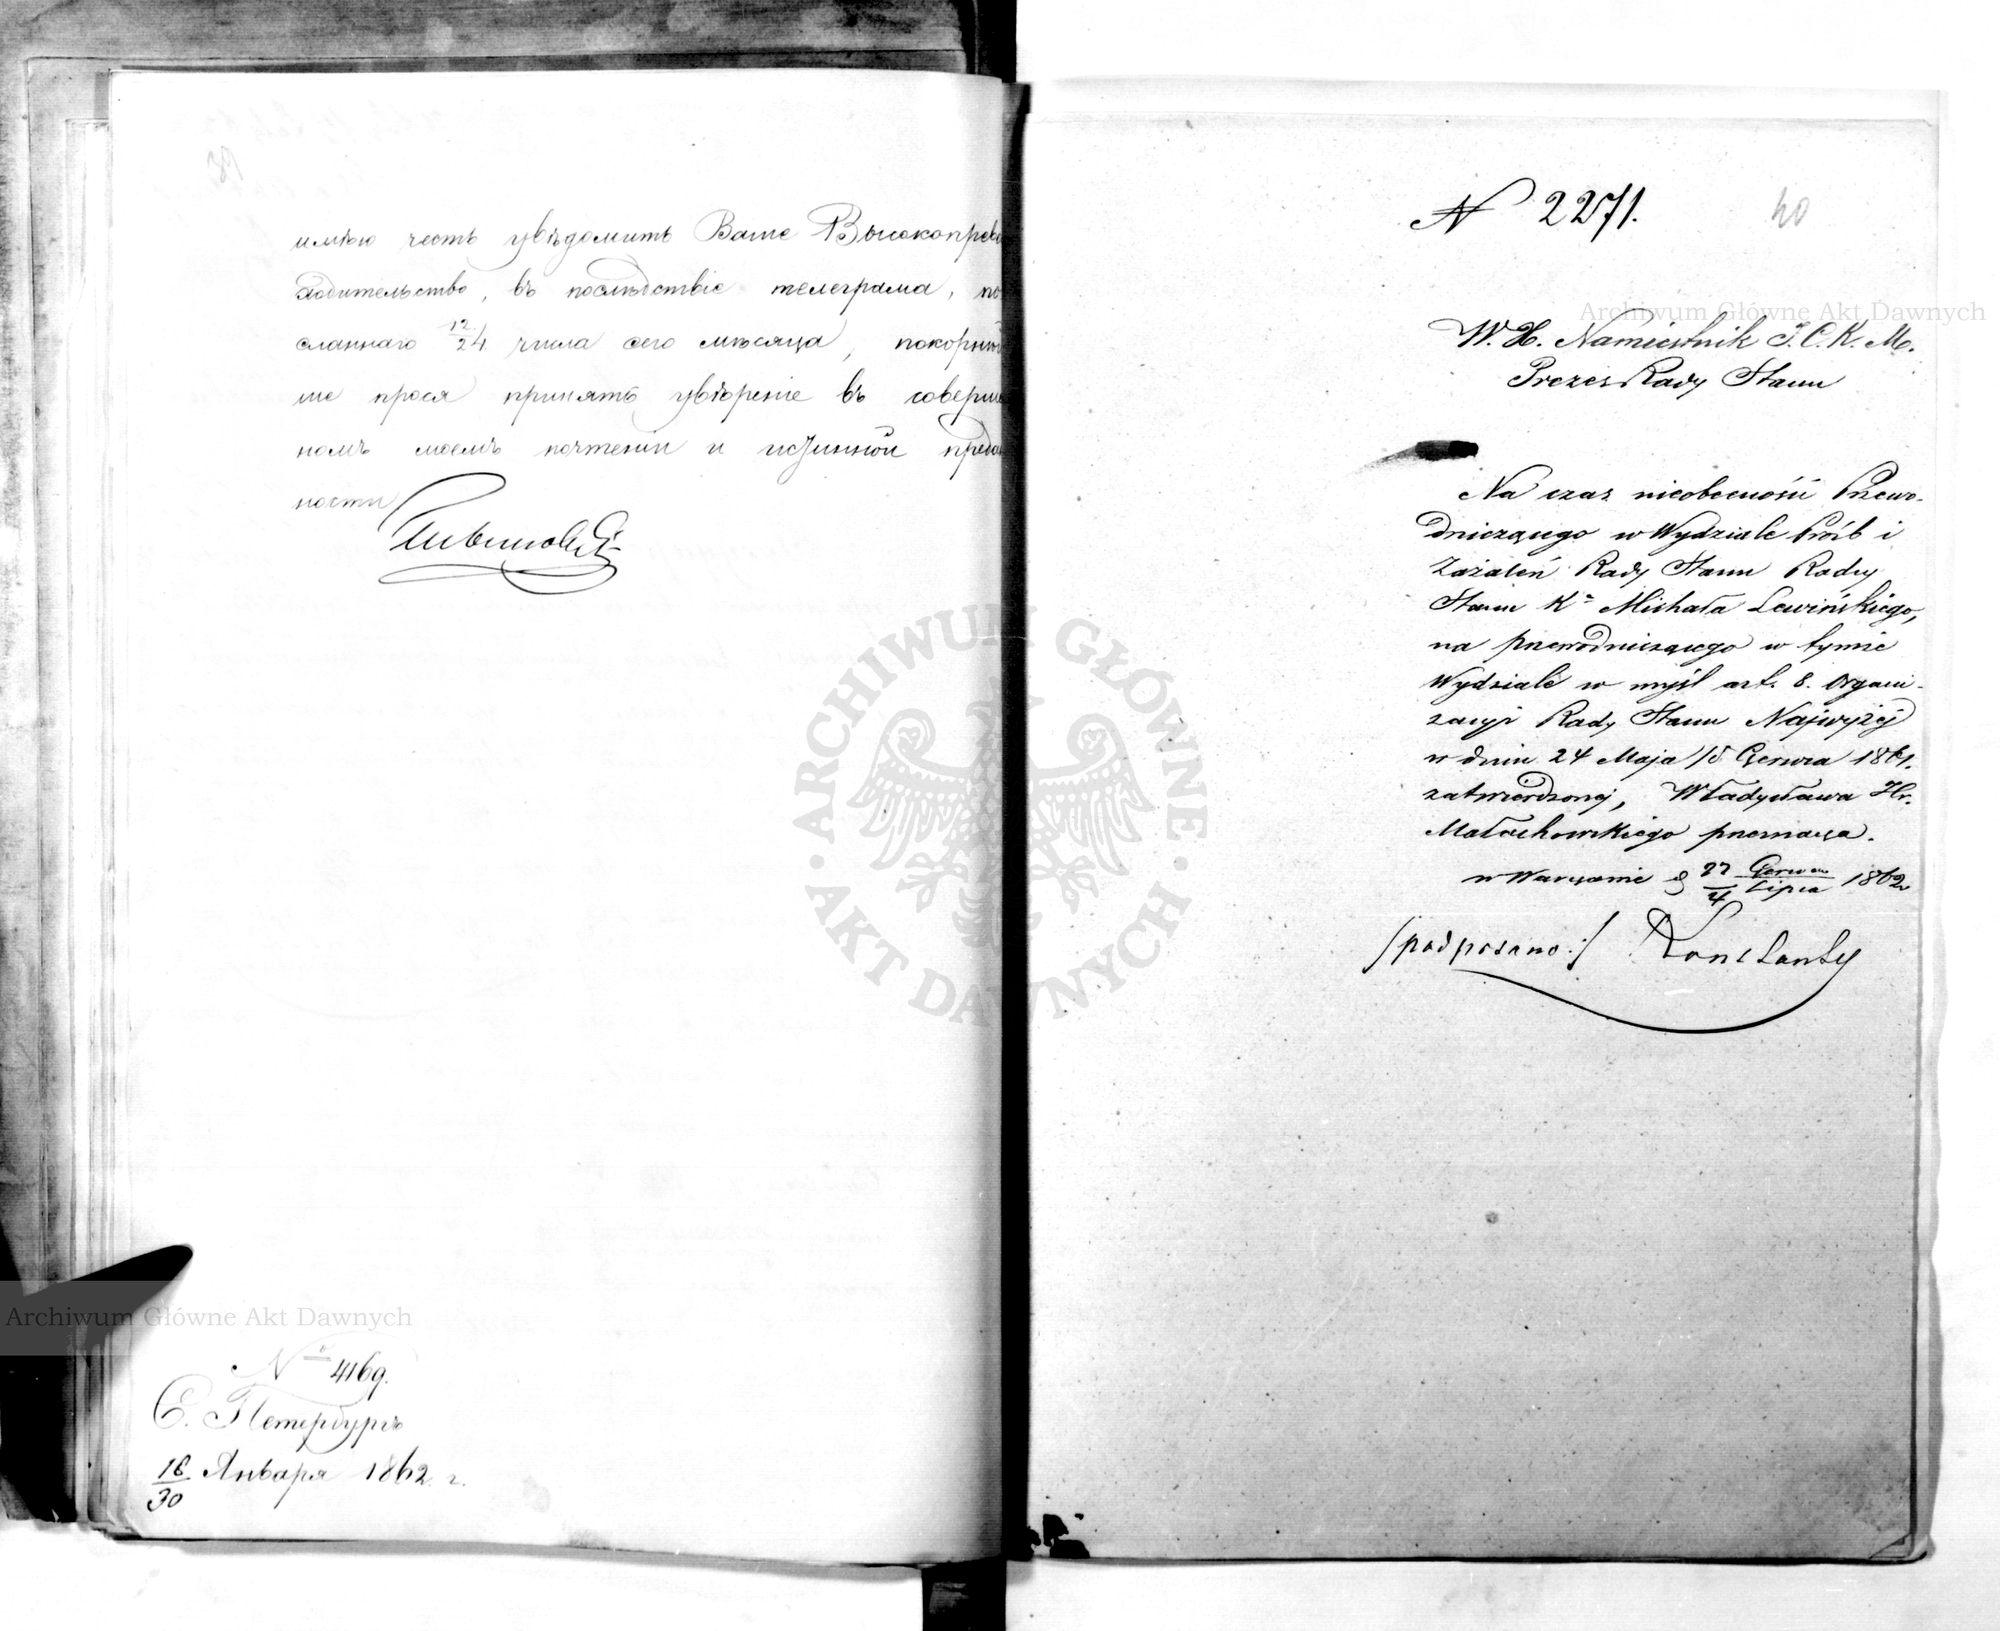 имѣю честь увѣдомить Ваше Высокопрево
ходительство, въ послѣдствіе телеграма, по
сланнаго 12/24 числа сего мѣсяца, покорнѣй
ше прося принять увѣреніе въ соверше
номъ моемъ почтеніи и истинной предан
ности
№ 4169.
С. Петербургъ
18/30 Января 1862 г.
N 2271.
40
W. X. Namiestnik J. C. K. M.
Prezes Rady Stanu
Na czas nieobecności Przewo-
dniczącego w Wydziale Próśb i
Zażaleń Rady Stanu Radcy
Stanu Kn Michała Lewińskiego,
na przewodniczącego w tymże
Wydziale w myśl art. 8. Organi-
zacyi Rady Stanu Najwyżej
w dniu 24 Maja /5 Czerwca 1861.
zatwierdzonej, Władysława Hr.
Małachowskiego przeznacza.
w Warszawie d 22 Czerwca / 4 Lipca 1862
/podpisano:/ Konstanty
Archiwum Główne Akt Dawnych
Archiwum Główne Akt Dawnych
ARCHIWUM GŁÓWNE · AKT DAWNYCH ·